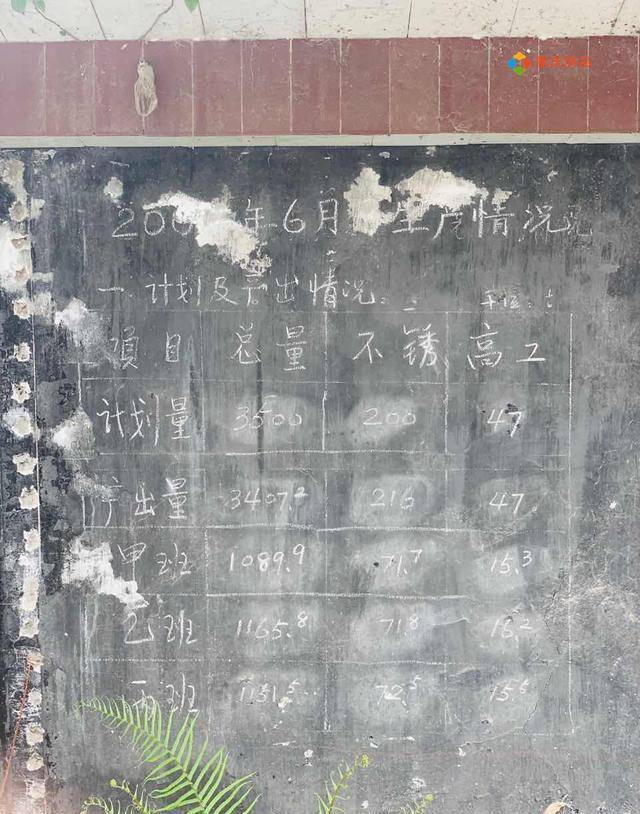 200 年6月 生产情况
一.计划及产出情况: 单位:t
项目 总量 不锈 高工
计划量 3500 200 47
产出量 3407.2 216 47
甲班 1089.9 71.7 15.3
乙班 1165.8 71.8 16.2
丙班 1151.5 72.5 15.5